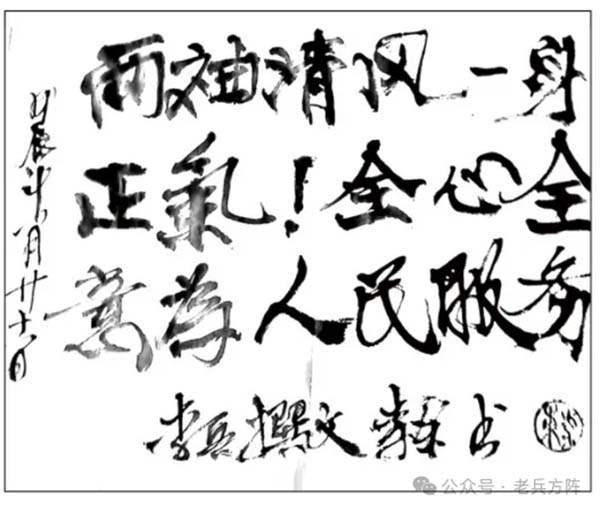 两袖清风一身
正氣！全心全
意為人民服务
李兵撰文 书
甲辰年 月廿十一日
公众号·老兵方阵